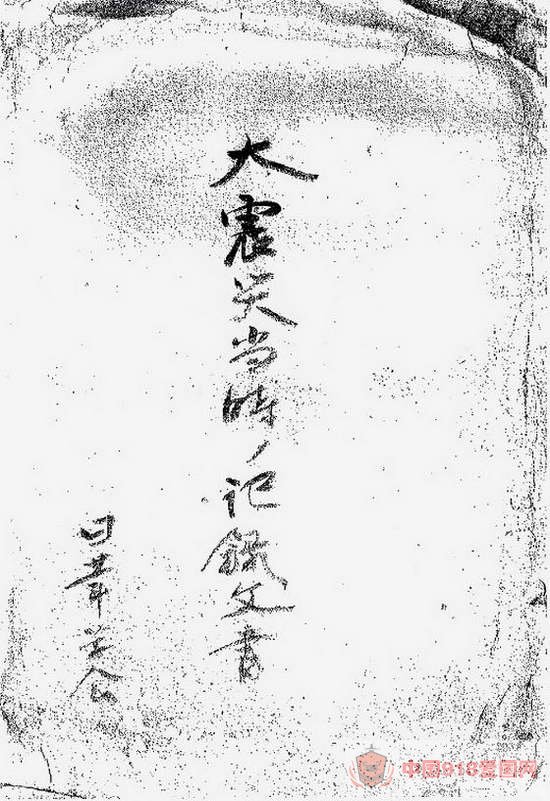 大震災当時ノ記録文書
日華学会
中国918爱国网